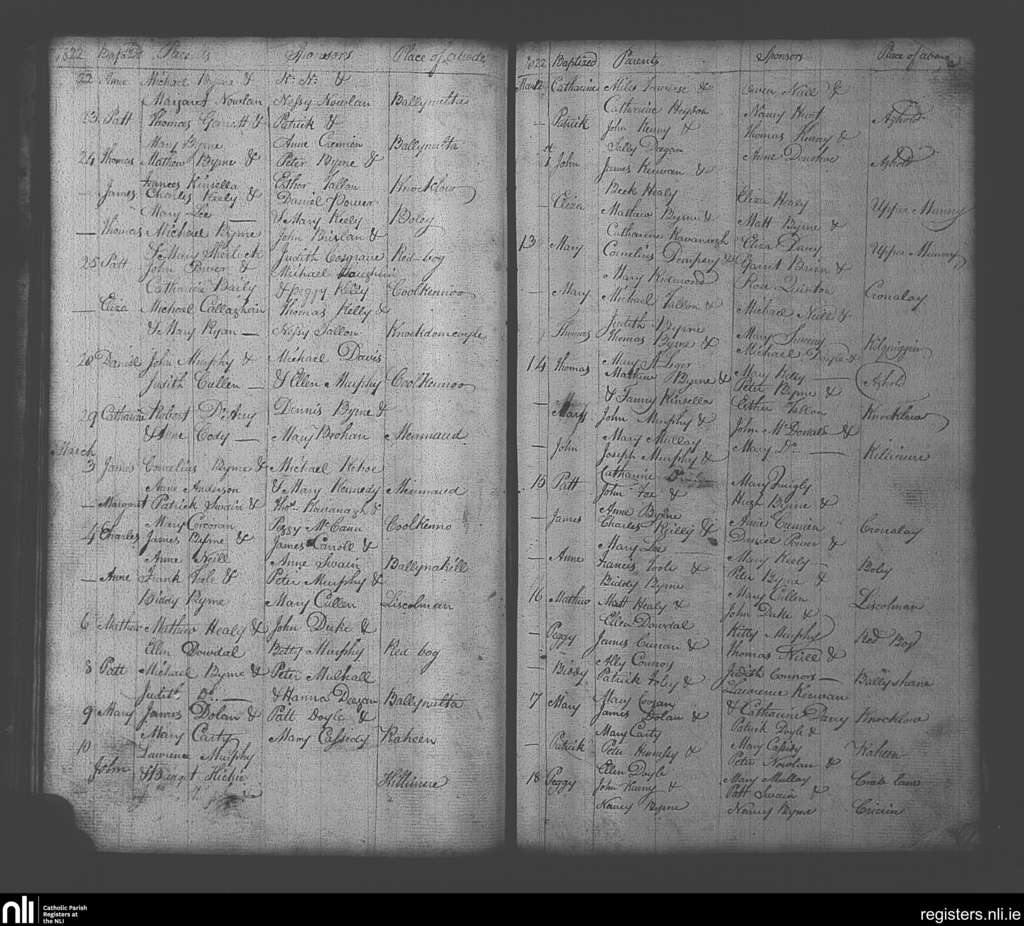 1822 Baptized Parents Sponsors Place of abode
22 Anne Michael Byrne & N. N. &
Margaret Nowlan Nessy Nowlan Ballynulta
23 Patt Thomas Garrett & Patrick &
Mary Byrne Anne Ballynulta
24 Thomas Mathew Byrne & Peter Byrne &
Frances Kinsella Esther Tallon Knocklow
— James Charles Keely & Daniel Power
Mary Lee & Mary Keely Boley
— Thomas Michael Byrne John &
& Mary Judith Cosgrave Red bog
25 Patt John Power & Michael
Catharine Baily & Peggy Kelly Coolkennoo
— Eliza Michael Callaghan Thomas Kelly &
& Mary Ryan — Nessy Tallon
28 Daniel John Murphy & Michael Davis
Judith Cullen — & Ellen Murphy Coolkennoo
29 Catharine Robert Dennis Byrne &
& Cody — Mary Brohan
March
3 James Cornelius Byrne & Michael Kehoe
Anne Anderson & Mary Kennedy
— Margaret Patrick Swain & Thos. Kavanagh &
Mary Corcoran Peggy McCann Coolkenno
4 Charles James Byrne & James Carroll &
Anne Neill Anne Swain Ballynakill
— Anne Frank Tole & Peter Murphy &
Biddy Byrne Mary Cullen Liscolman
6 Mathew Mathew Healy & John Duke &
Ellen Dowdal Betty Murphy Red bog
8 Patt Michael Byrne & Peter Mulhall
Judith Do. — & Hanna Deegan Ballynulta
9 Mary James Dolan & Patt Doyle &
Mary Carty Mary Cassidy Raheen
10 Lawrence Murphy
John Hickie Killinure
1822 Baptized Parents Sponsors Place of abode
Mar 12 Catharine Miles & Owen Neill &
Catharine Nancy Hunt Aghold
— Patrick John Kenny & Thomas Kenny &
Juley Deegan Anne Aghold
John James Kerwan &
Beck Healy Eliza Healy Upper Munny
— Eliza Mathew Byrne & Matt Byrne &
Catharine Kavanagh Eliza Darcy Upper Munny
13 Mary Cornelius Dempsey & Garret Byrne &
Mary Redmond Rose Quinton Cronalay
— Mary Michael Tallon & Michael Neill &
Judith Byrne Mary Kilquiggin
Thomas Thomas Byrne & Michael &
Mary Mary Aghold
14 Thomas Mathew Byrne & Peter Byrne &
& Fanny Kinsella Esther Tallon Knocklow
— Mary John Murphy & John McDonald &
Mary Mullay Mary Do. — Killinure
— John Joseph Murphy &
Catharine Mary Quigly
15 Patt John Fox & Hugh Byrne &
Anne Byrne Anne Cronalay
— James Charles Keilly & Daniel Power &
Mary Lee Mary Keely — Boley
— Anne Francis Toole & Peter Byrne &
Biddy Byrne Mary Cullen Liscolman
16 Mathew Matt Healy & John Duke &
Ellen Dowdal Kitty Murphy Red Bog
— Peggy James Curran & Thomas Neill &
Ally Connors Judith Connors — Ballyshane
— Biddy Patrick & Lawrence Kerwan
Mary Cogan & Catharine Darcy Knocklow
17 Mary James Dolan & Patrick Doyle &
Mary Carty Mary Cassidy Raheen
— Patrick Peter Hennessy & Peter Nowlan &
Ellen Doyle Mary Mullay Crab lane
18 Peggy John Kenny & Patt Swain &
Nancy Byrne Nancy Byrne
nli Catholic Parish
Registers at
the NLI
registers.nli.ie